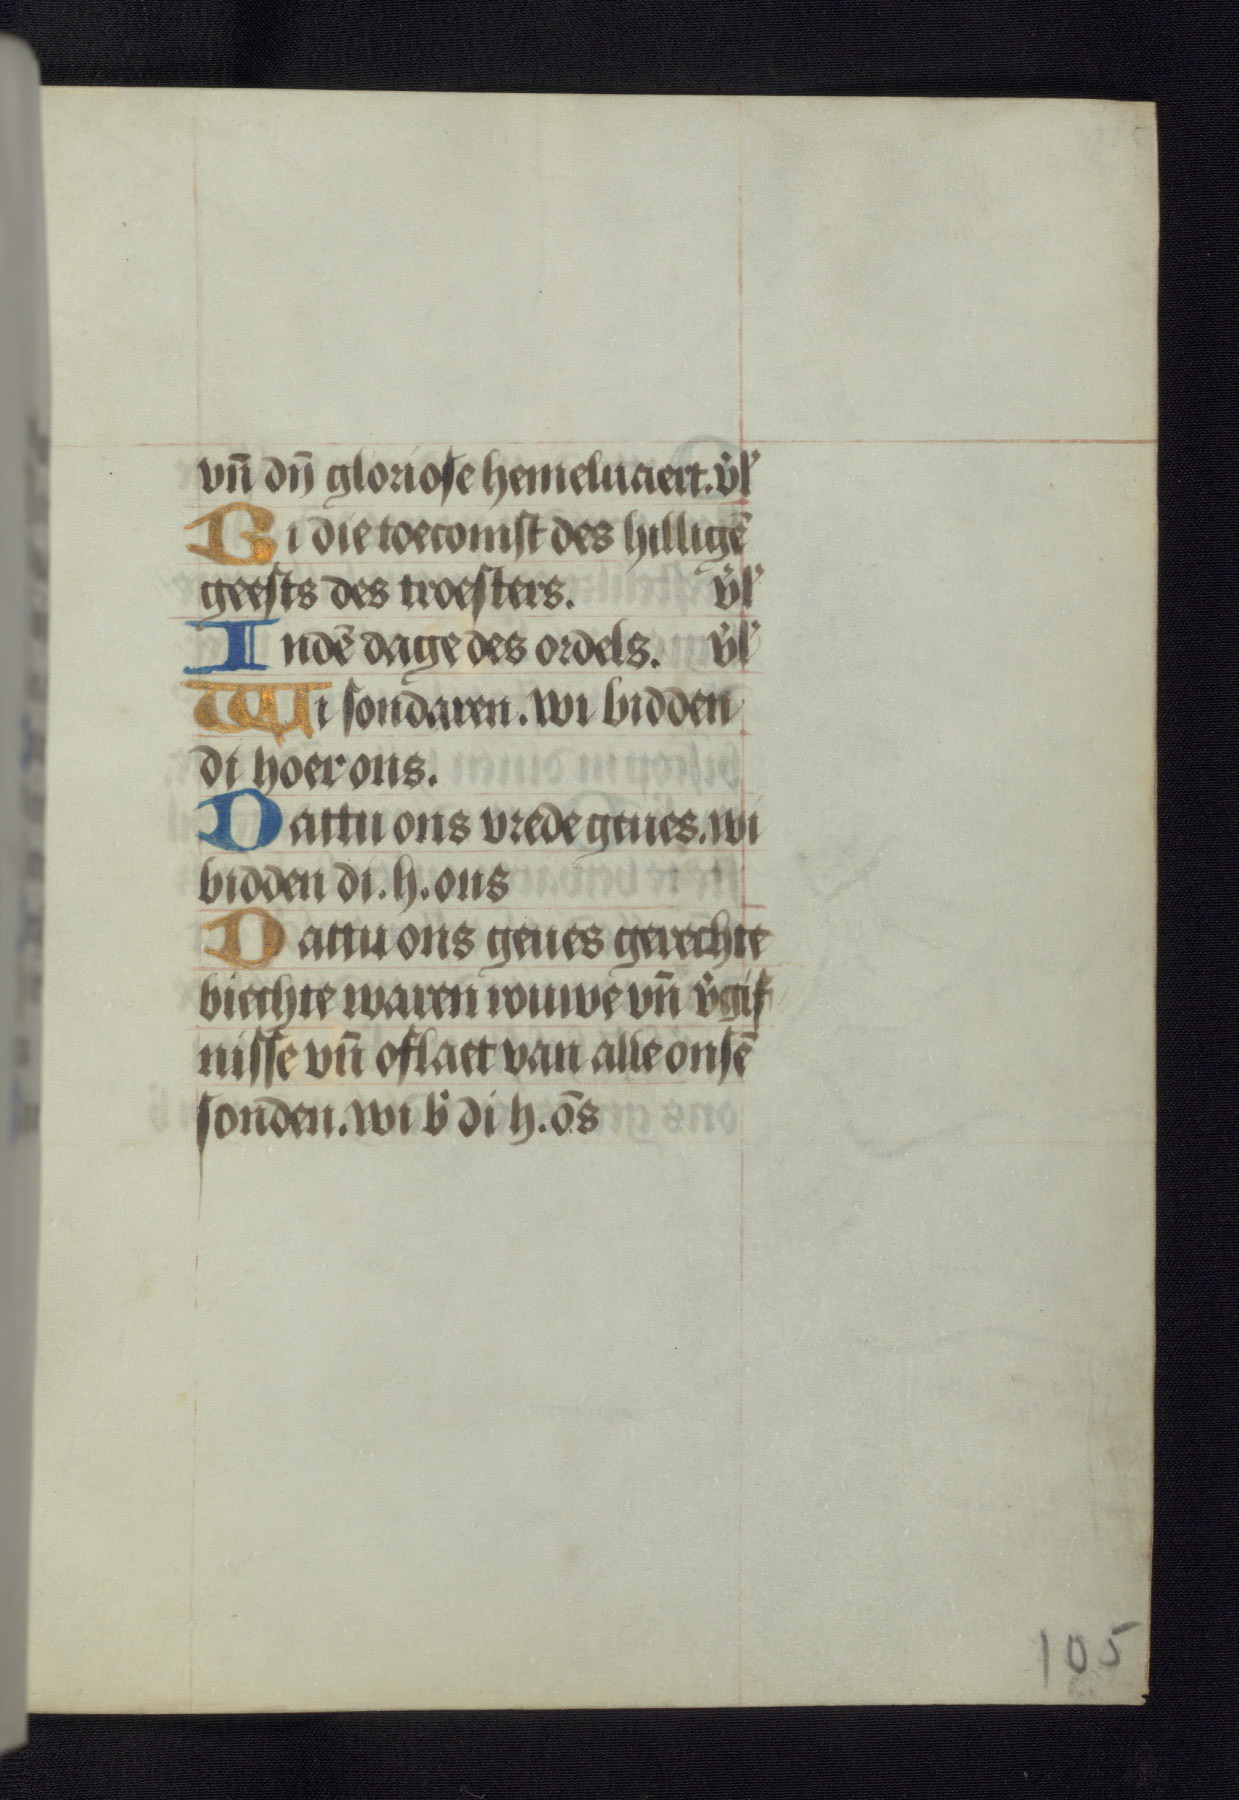 vn̄ dȳ gloriose hemeluaert. v̾l'
Bi die toecomst des hilligē
geests des troesters. v̾l'
Indē dage des ordels. v̾l'
Wi sondaren. wi bidden
di hoer ons.
Dattu ons vrede geues. wi
bidden di. h. ons
Dattu ons geues gerechte
biechte waren rouwe vn̄ v̾gif
nisse vn̄ oflaet van alle onsē
sonden. wi b̾ di h. ōs
105